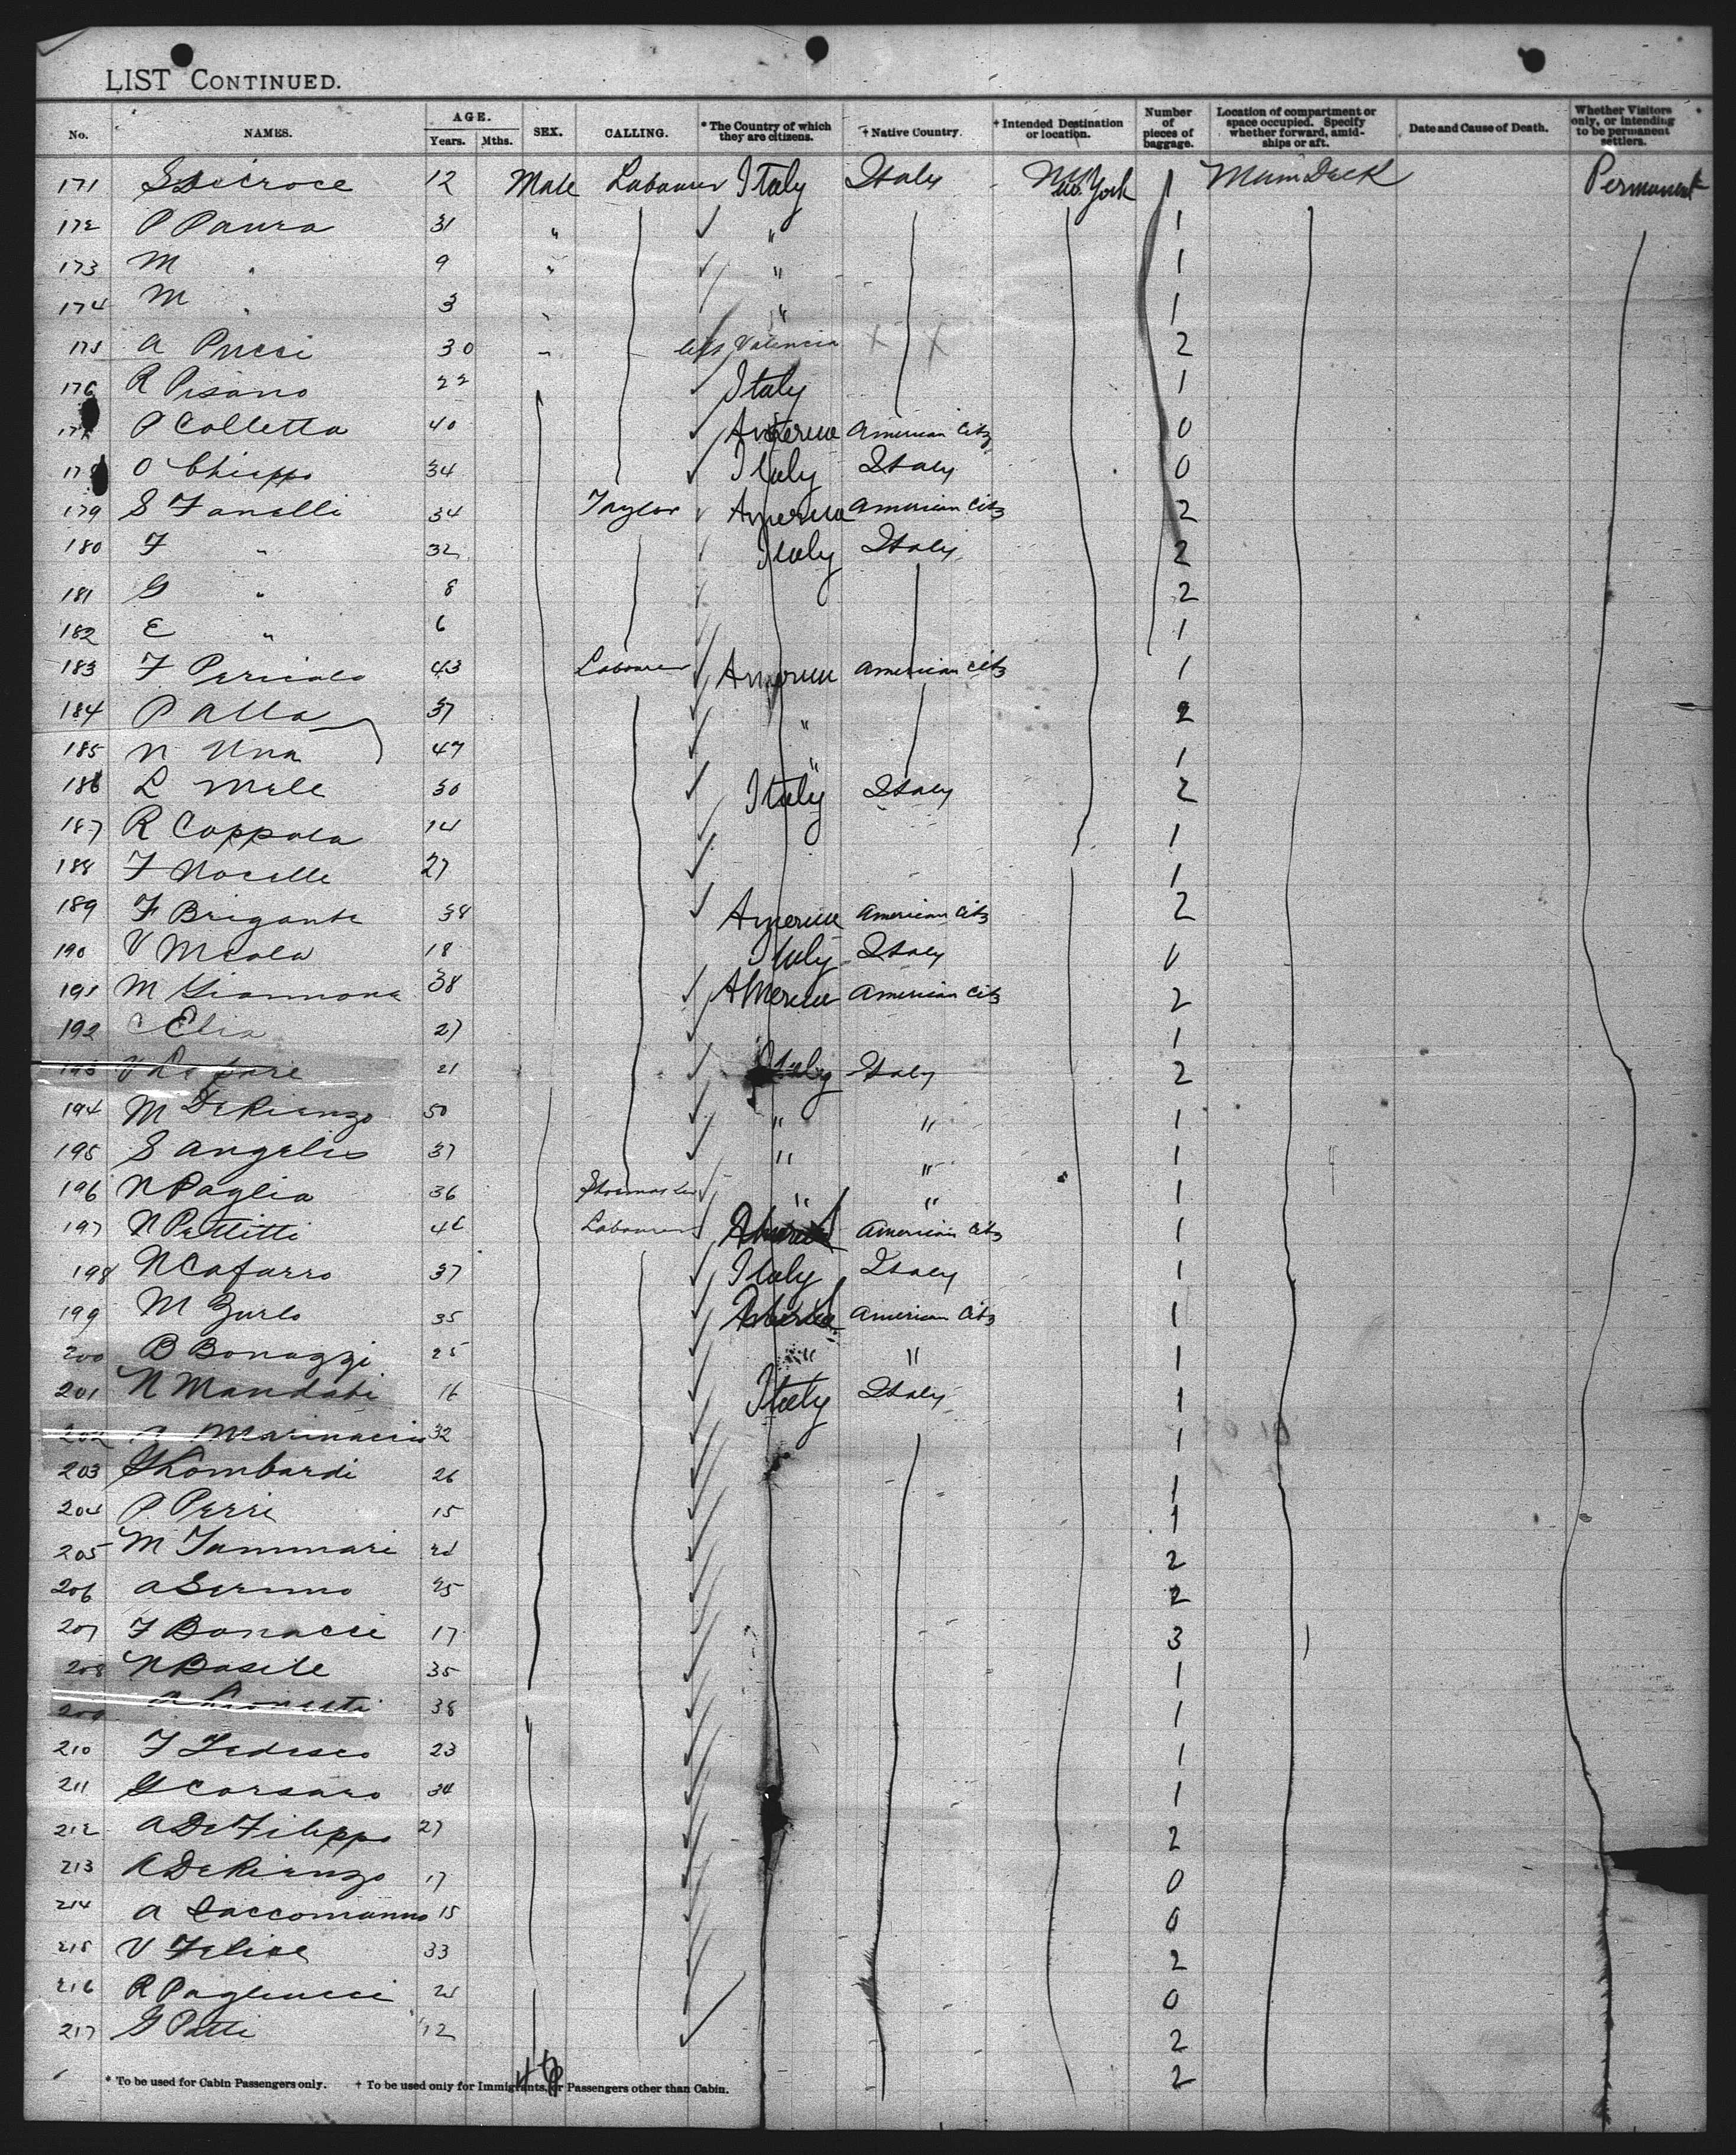 LIST CONTINUED.
No. NAMES. AGE. Years. Mths. SEX. CALLING. * The Country of which they are citizens. † Native Country. † Intended Destination or location. Number of pieces of baggage. Location of compartment or space occupied. Specify whether forward, amidships or aft. Date and Cause of Death. Whether Visitors only, or intending to be permanent settlers.
171 12 Male Labourer Italy Italy New York 1 Main Deck Permanent
172 P Paura 31 " " 1
173 M " 9 " " 1
174 M " 3 " " 1
175 A Pucci 30 " Valencia 2
176 R Pisano 22 Italy 1
P Colletta 40 America American Citz 0
O Chieppo 34 Italy Italy 0
179 S Fanelli 34 Taylor America American Citz 2
180 F " 32 Italy Italy 2
181 G " 8 2
182 E " 6 1
183 F Pericolo 43 Labourer America American Citz 1
184 P Alla 37 " 2
185 N Una 47 " 1
186 L Mele 30 Italy Italy 2
187 R Coppola 14 1
188 F Nocelle 27 1
189 F Brigante 34 America American Citz 2
190 V Meola 18 Italy Italy 0
191 M Giannone 38 America American Citz 2
192 C Elia 27 1
193 V 21 Italy Italy 2
194 M De Rienzo 50 " " 1
195 S Angelis 37 " " 1
196 N Paglia 36 Shoemaker " " 1
197 N Pettitti 46 Labourer America American Citz 1
198 N Cafarro 37 Italy Italy 1
199 M Zurlo 35 America American Citz 1
200 B Bonazzi 25 " " 1
201 N Mandati 16 Italy Italy 1
202 Marinaccio 32 1
203 G Lombardi 26 1
204 P Perri 15 1
205 M Tammari 2
206 A Serino 25 2
207 F Bonacci 17 3
208 N Basile 35 1
209 A 38 1
210 F Tedesco 23 1
211 G Corsaro 34 1
212 A De Filippo 27 2
213 A De Rienzo 17 0
214 A Saccomanno 15 0
215 V Felice 33 2
216 R Pagliucci 0
217 G Patti 12 2
2
* To be used for Cabin Passengers only. † To be used only for Immigrants, or Passengers other than Cabin.